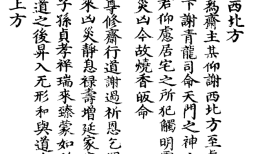 西北方
爲齋主某仰謝西北方至
下謝青龍司命天門之神
若仰慮居宅之所犯觸明
災凶今故燒香皈命
尊修齋行道謝過祈恩乞
來凶災静息禄壽增延家
子孫貞孝祥瑞來臻蒙如
道之後昇入无形和與道
上方